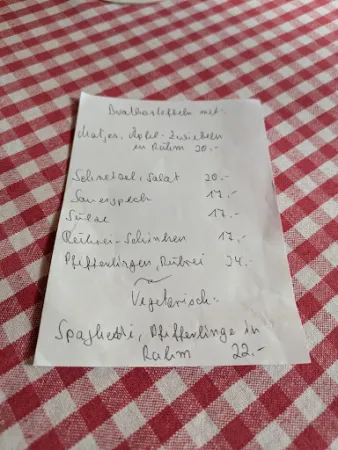 Bratkartoffeln mit:
Matjes, Apfel-Zwiebeln
in Rahm 20.-
Schnitzel, Salat 20.-
Sauerspeck 17.-
Sülze 17.-
Rührei-Schinken 17.-
Pfifferlingen, Rührei 24.-
Vegetarisch:
Spaghetti, Pfifferlinge in
Rahm 22.-